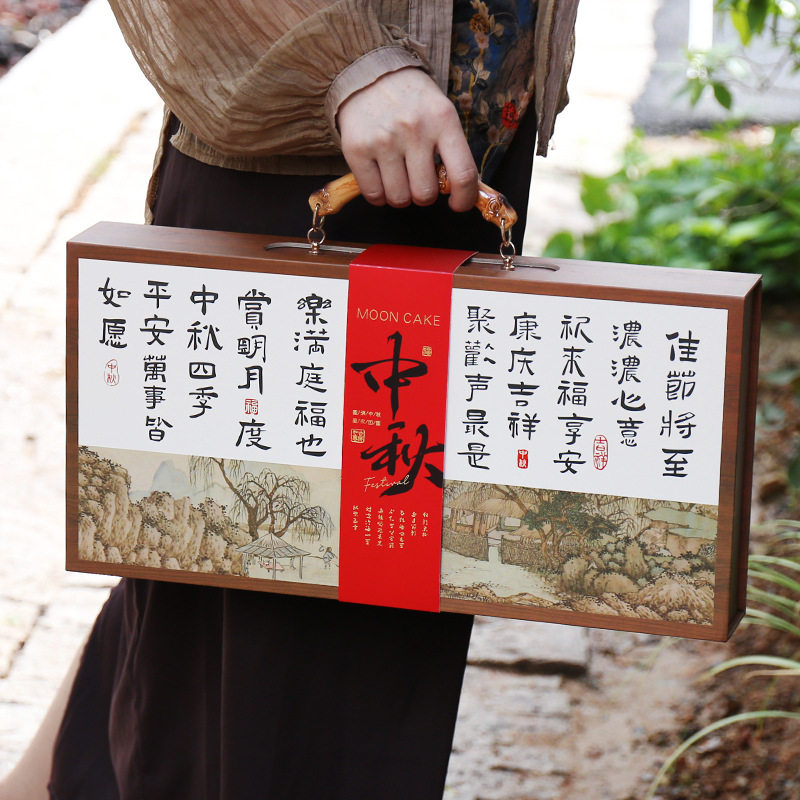 佳節將至
濃濃心意
吉祥
祝来福享安
康庆吉祥
中秋
聚歡声最是
MOON CAKE
中秋
Festival
樂満庭福也
賞明月
福
度
中秋四季
平安萬事皆
如愿
中秋